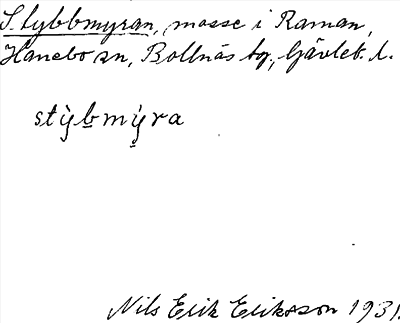 Stybbmyran, mosse i Raman,
Hanebo sn, Bollnäs tg., Gävleb. l.
stỳb̲mỵ̀ra
Nils Erik Eriksson 1931.